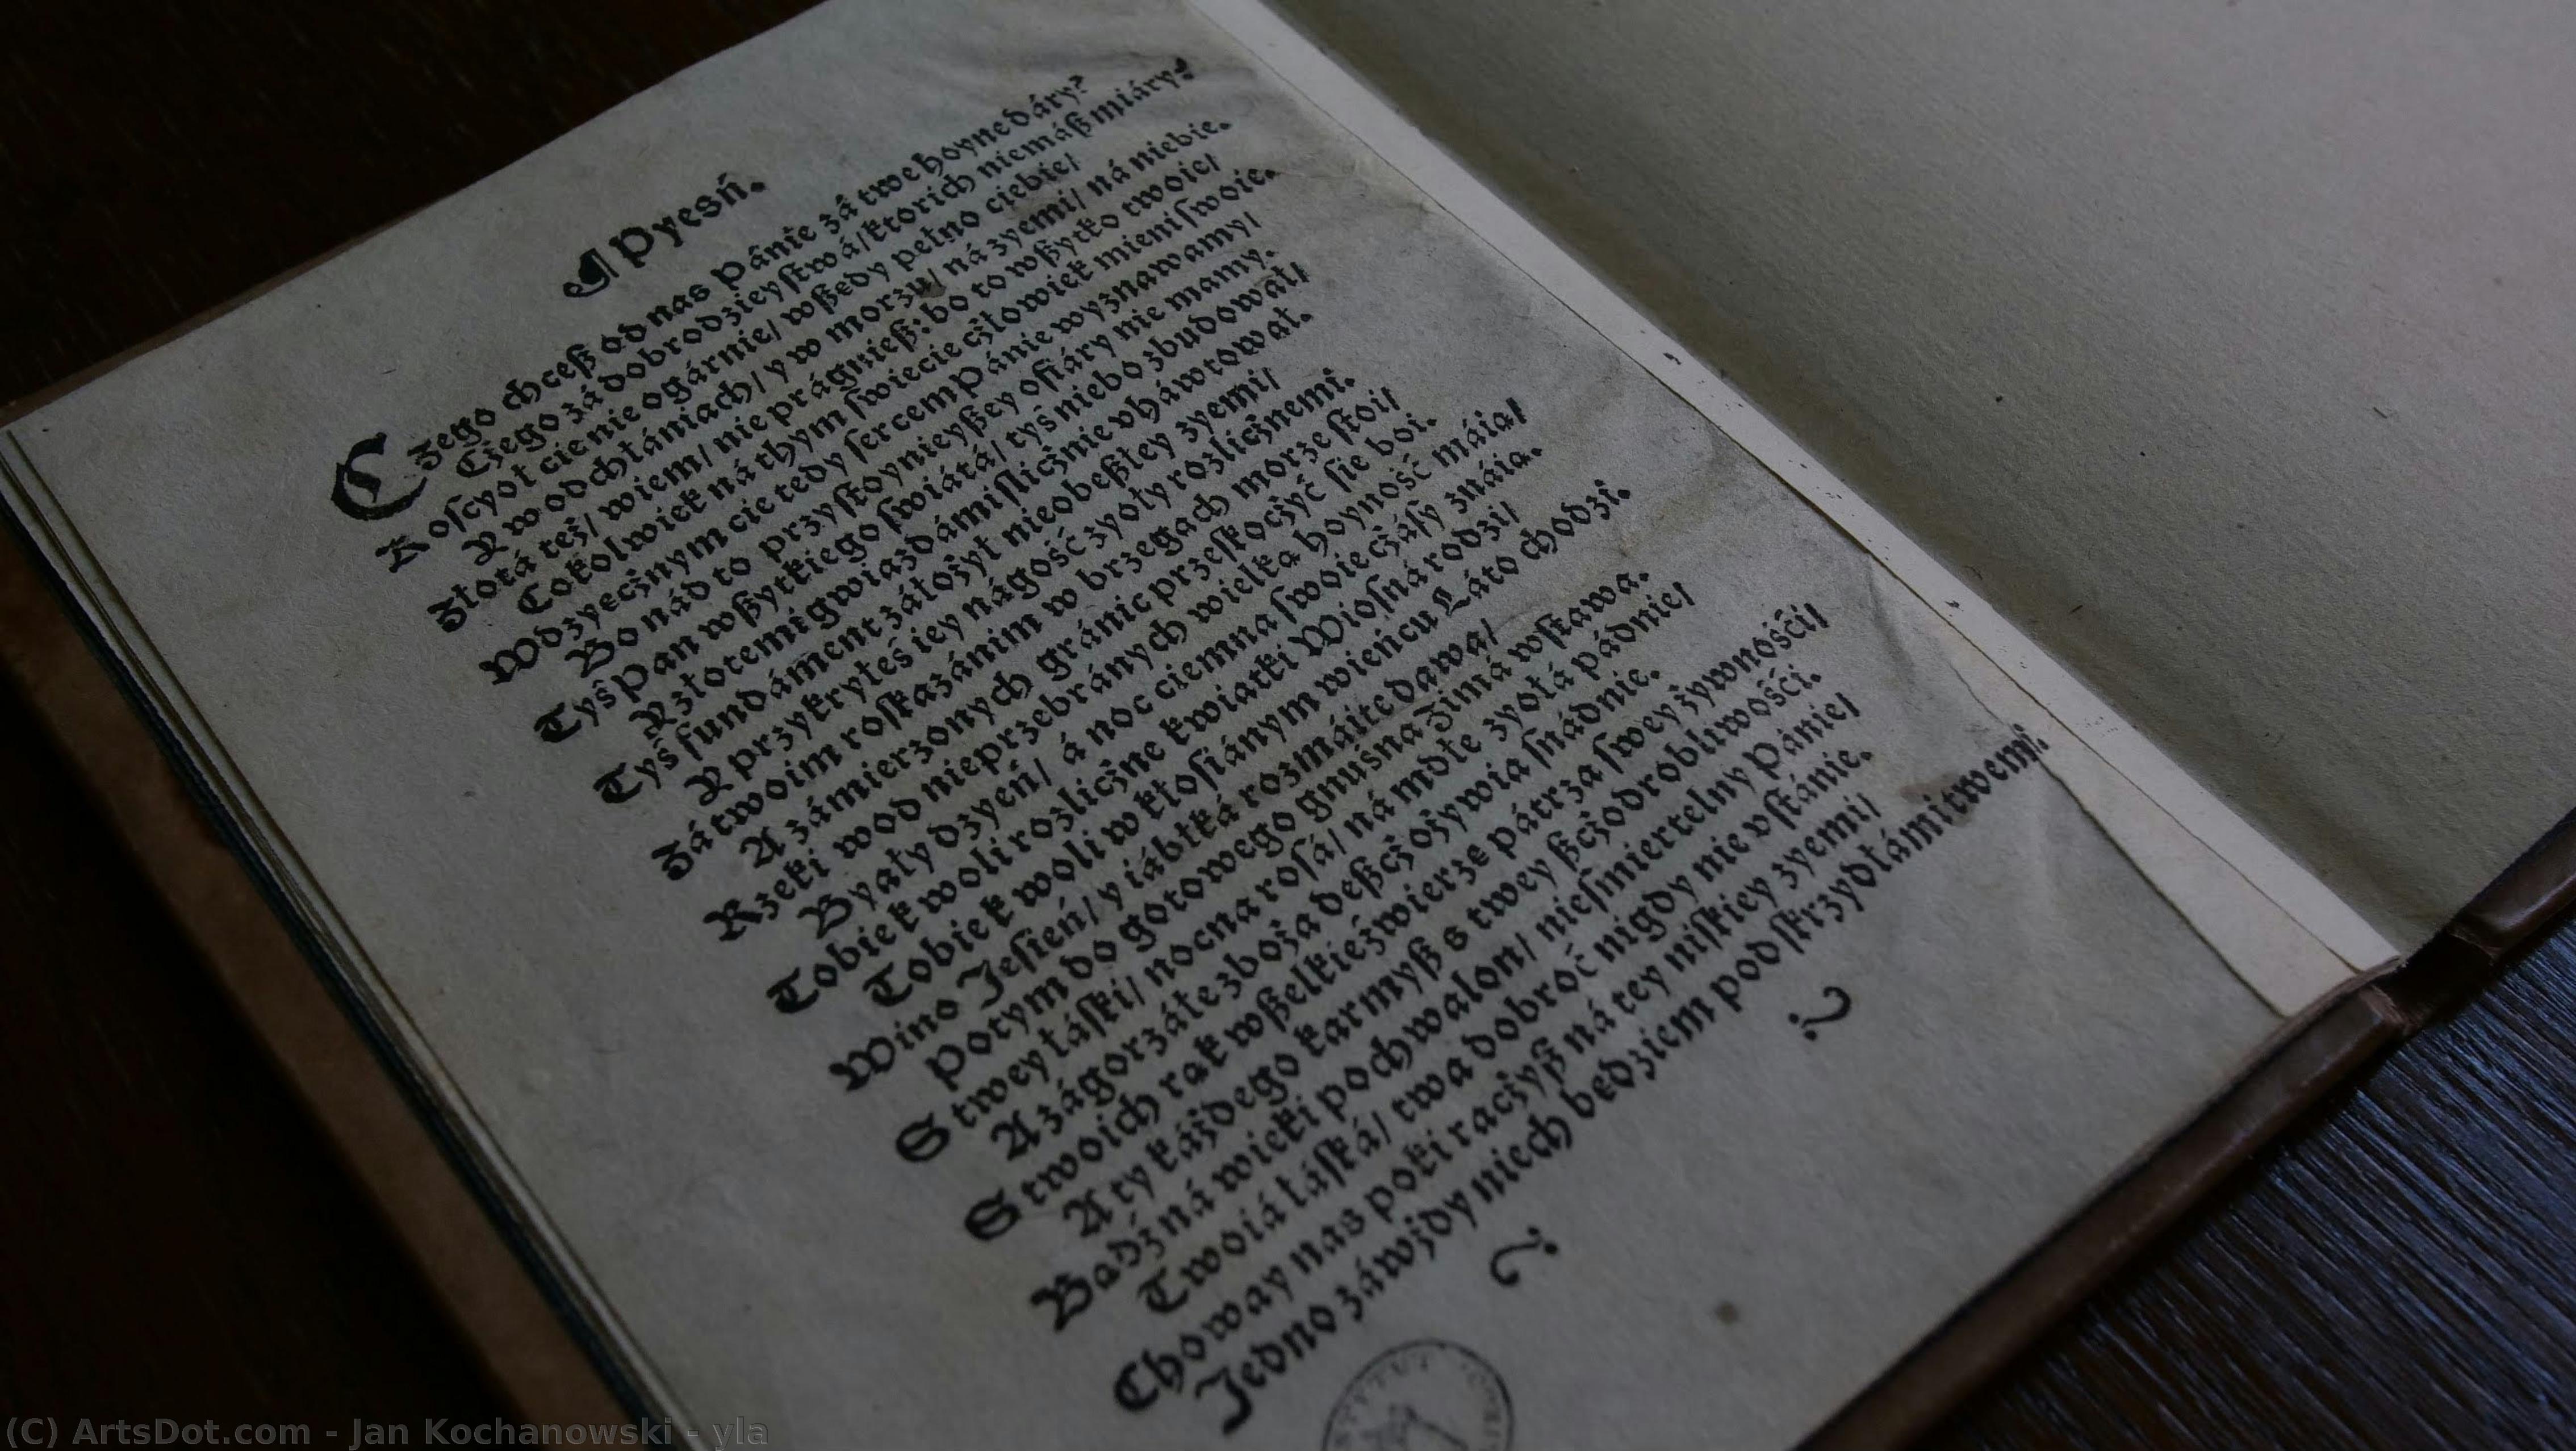 ¶ Pyesń.
Czego chceß od nas Pánie zá twe hoyne dáry?
Czego zá dobrodzieyſtwá/ ktorich niemáß miáry?
Koſcyoł cie nie ogárnie/ wßedy pełno ciebie/
Y w odchłániach/ y w morzu/ ná zyemi/ ná niebie.
Złotá też/ wiem/ nie prágnieß: bo to wßytko twoie/
Cokolwiek ná thym ſwiecie człowiek mieni ſwoie.
Wdzyecznym cie tedy ſercem Pánie wyznawamy/
Bo nád to przyſtoynieyßey ofiáry nie mamy.
Tyś Pan wßytkiego ſwiátá/ tyś niebo zbudował/
Y złotemi gwiazdámi ſlicznie vháwtował.
Tyś fundáment záłożył nieobeßłey zyemi/
Y przykryłeś iey nágość zyoły rozlicznemi.
Zá twoim roſkazánim w brzegach morze ſtoi/
A zámierzonych gránic przeſkoczyć ſie boi.
Rzeki wod nieprzebránych wielka hoyność máia/
Byały dzyeń/ á noc ciemna ſwoie czáſy znáia.
Tobie k woli rozliczne kwiatki Wioſná rodzi/
Tobie k woli w kłoſiánym wieńcu Láto chodzi.
Wino Jeſień/ y iábłká rozmáite dawa/
Potym do gotowego gnuśna Zimá wſtawa.
S twey łáſki/ nocna roſá/ ná mdłe zyołá pádnie/
A zágorzáłe zboża deßcz ożywia ſnádnie.
S twoich rak wßelkie źwierze pátrza ſwey żywnośći/
A ty káżdego karmyß s twey ßczodrobliwośći.
Badź ná wieki pochwalon/ nieſmiertelny Pánie/
Twoiá łáſká/ twa dobroć nigdy nie vſtánie.
Choway nas poki raczyß ná tey niſkiey zyemi/
Jedno záwżdy niech bedziem pod ſkrzydłámi twemi.
(C) ArtsDot.com - Jan Kochanowski - yla